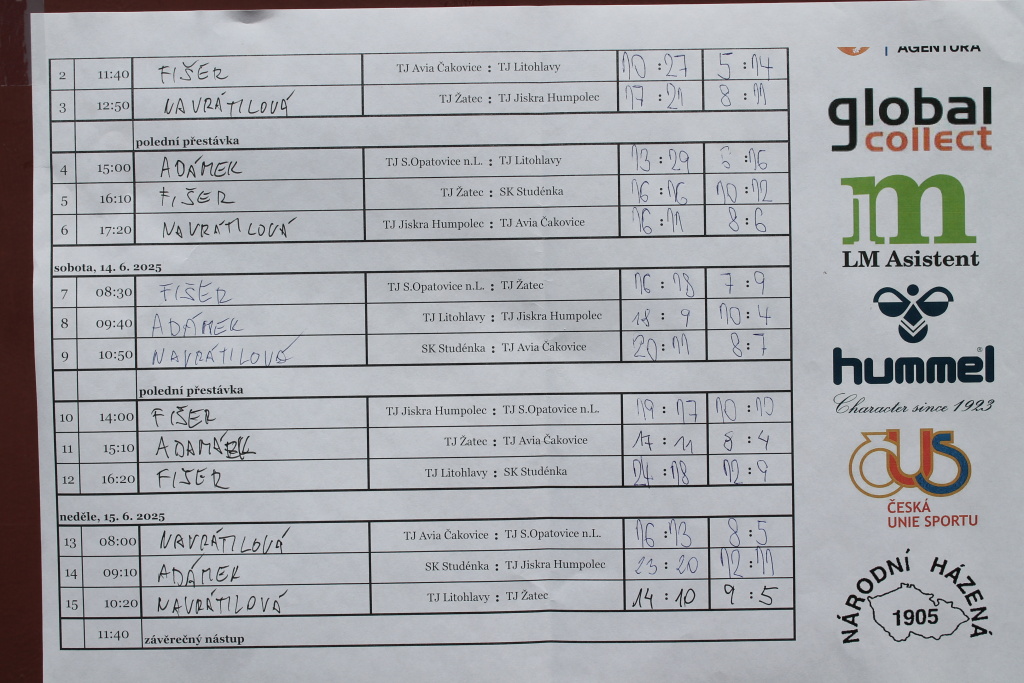 AGENTURA
2 11:40 FIŠER TJ Avia Čakovice : TJ Litohlavy 10 : 27 5 : 14
3 12:50 NAVRÁTILOVÁ TJ Žatec : TJ Jiskra Humpolec 17 : 21 8 : 11
polední přestávka
4 15:00 ADÁMEK TJ S.Opatovice n.L. : TJ Litohlavy 13 : 29 : 16
5 16:10 FIŠER TJ Žatec : SK Studénka 16 : 16 10 : 12
6 17:20 NAVRÁTILOVÁ TJ Jiskra Humpolec : TJ Avia Čakovice 16 : 11 8 : 6
sobota, 14. 6. 2025
7 08:30 FIŠER TJ S.Opatovice n.L. : TJ Žatec 16 : 18 7 : 9
8 09:40 ADÁMEK TJ Litohlavy : TJ Jiskra Humpolec 18 : 9 10 : 4
9 10:50 NAVRÁTILOVÁ SK Studénka : TJ Avia Čakovice 20 : 11 8 : 7
polední přestávka
10 14:00 FIŠER TJ Jiskra Humpolec : TJ S.Opatovice n.L. 19 : 17 10 : 10
11 15:10 ADAMÁEK TJ Žatec : TJ Avia Čakovice 17 : 11 8 : 4
12 16:20 FIŠER TJ Litohlavy : SK Studénka 24 : 18 12 : 9
neděle, 15. 6. 2025
13 08:00 NAVRÁTILOVÁ TJ Avia Čakovice : TJ S.Opatovice n.L. 16 : 13 8 : 5
14 09:10 ADÁMEK SK Studénka : TJ Jiskra Humpolec 23 : 20 12 : 11
15 10:20 NAVRÁTILOVÁ TJ Litohlavy : TJ Žatec 14 : 10 9 : 5
11:40 závěrečný nástup
global
collect
m
LM Asistent
hummel
Character since 1923
ČUS
ČESKÁ
UNIE SPORTU
NÁRODNÍ HÁZENÁ
1905